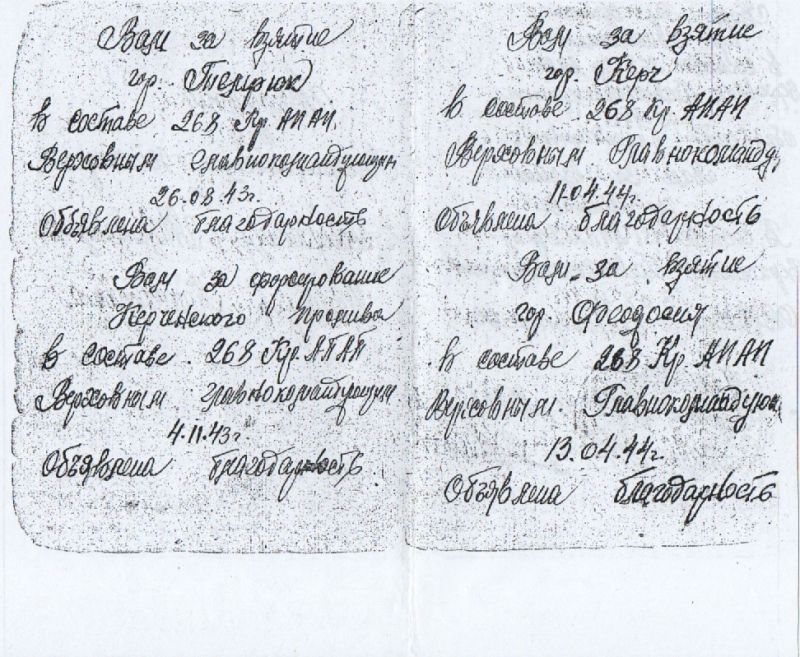 Вам за взятие
гор. Темрюк
в составе 268 Кр. АПАП.
Верховным Главнокомандующим
26.08.43г.
Объявлена благодарность
Вам за форсирование
Керченского пролива
в составе 268 Кр. АПАП
Верховным главнокомандующим
4.11.43г
Объявлена благодарность
Вам за взятие
гор. Керч
в составе 268 Кр. АПАП
Верховным Главнокоманду
11.04.44г.
Объявлена благодарность
Вам за взятие
гор. Феодосия
в составе 268 Кр АПАП
Верховным Главнокомандующ
13.04.44г.
Объявлена благодарность